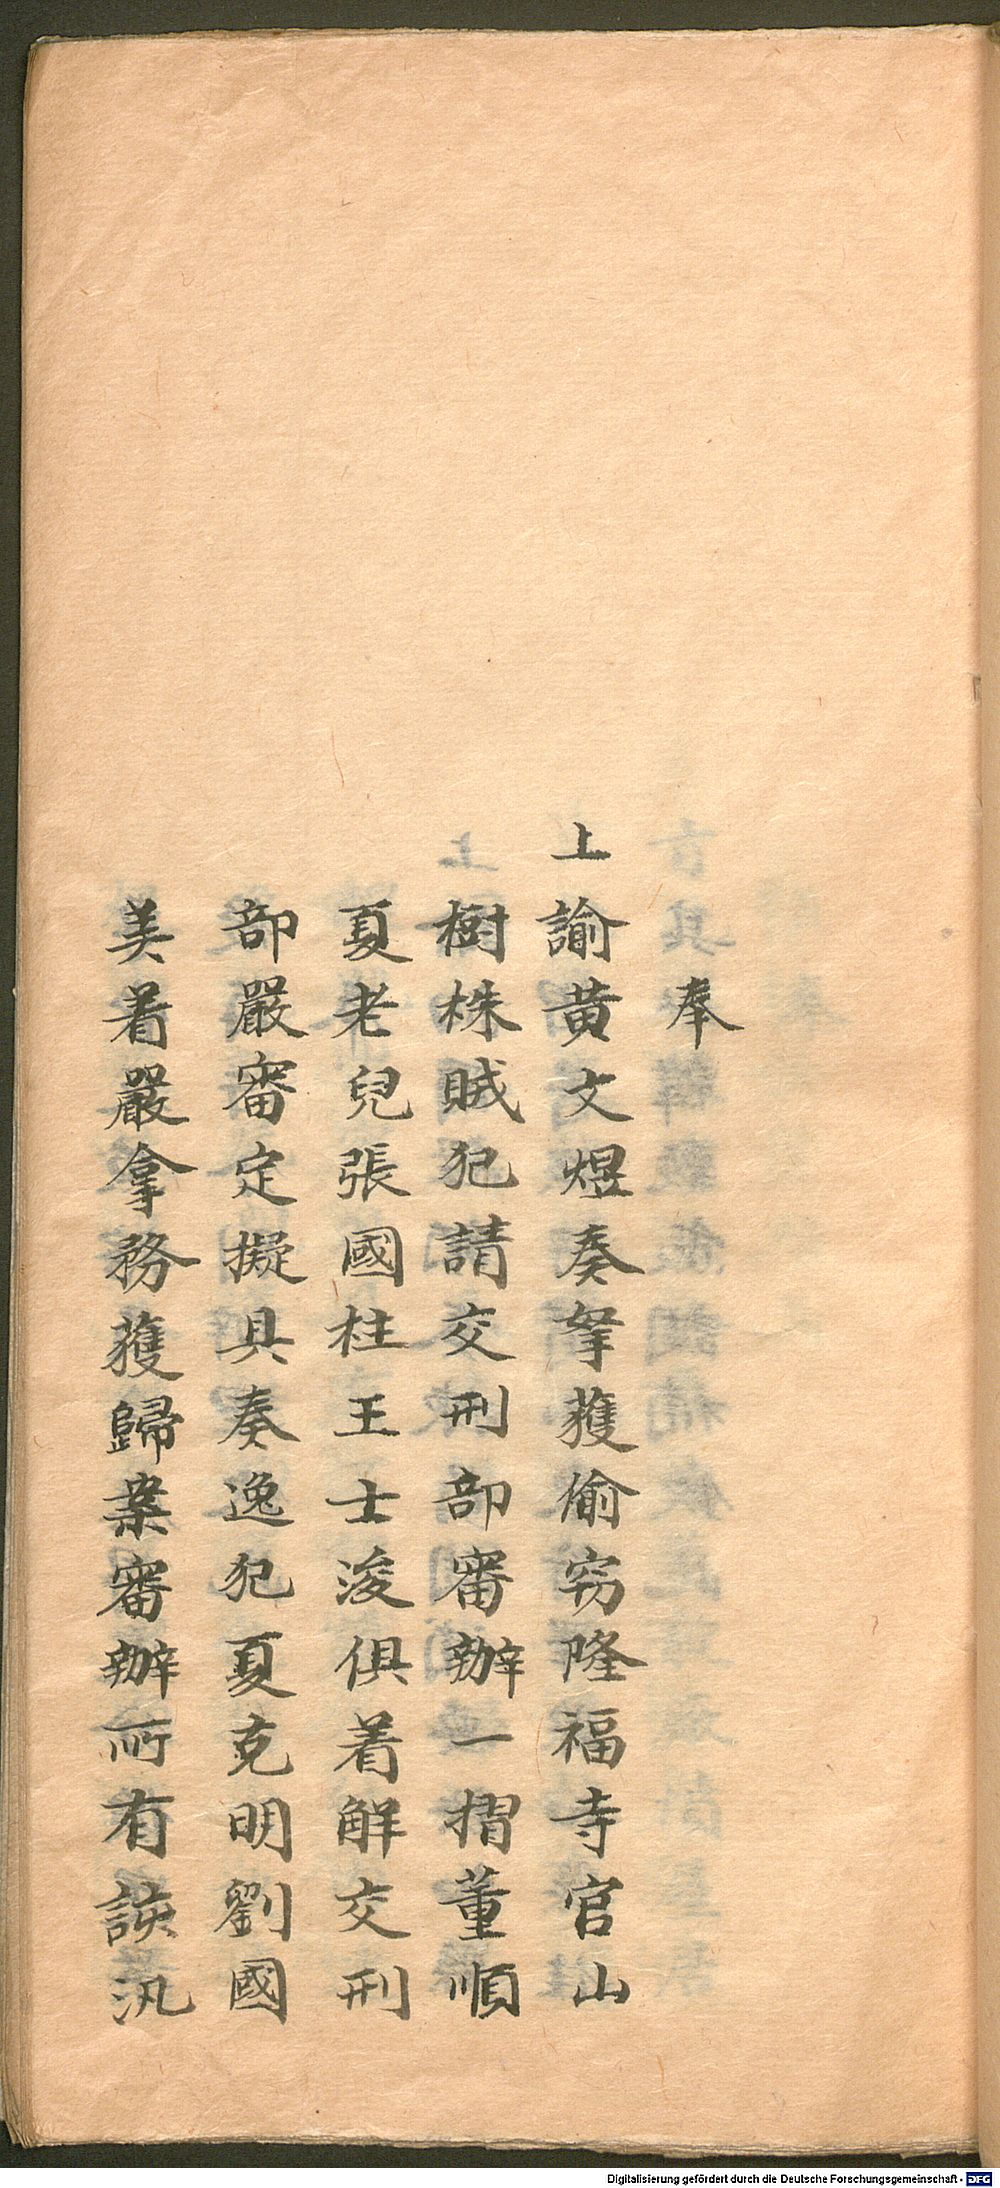 奉
上諭黄文煜奏拏獲偷窃隆福寺官山
樹株賊犯請交刑部審辦一摺董順
夏老兒張國柱王士浚俱着解交刑
部嚴審定擬具奏逸犯夏克明劉國
美着嚴拿務獲歸案審辦所有該汛
Digitalisierung gefördert durch die Deutsche Forschungsgemeinschaft - DFG